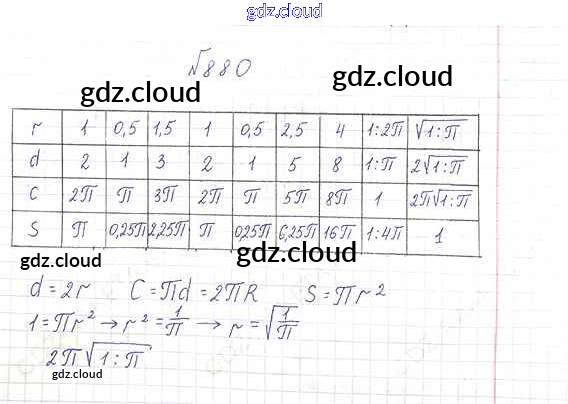 gdz.cloud
№880
gdz.cloud gdz.cloud
r 1 0,5 1,5 1 0,5 2,5 4 1:2π √1:π
d 2 1 3 2 1 5 8 1:π 2√1:π
C 2π π 3π 2π π 5π 8π 1 2π√1:π
S π 0,25π 2,25π π 0,25π 6,25π 16π 1:4π 1
gdz.cloud gdz.cloud
d=2r C=πd=2πR S=πr²
1=πr² → r²=1/π → r=√1/π
2π√1:π
gdz.cloud gdz.cloud